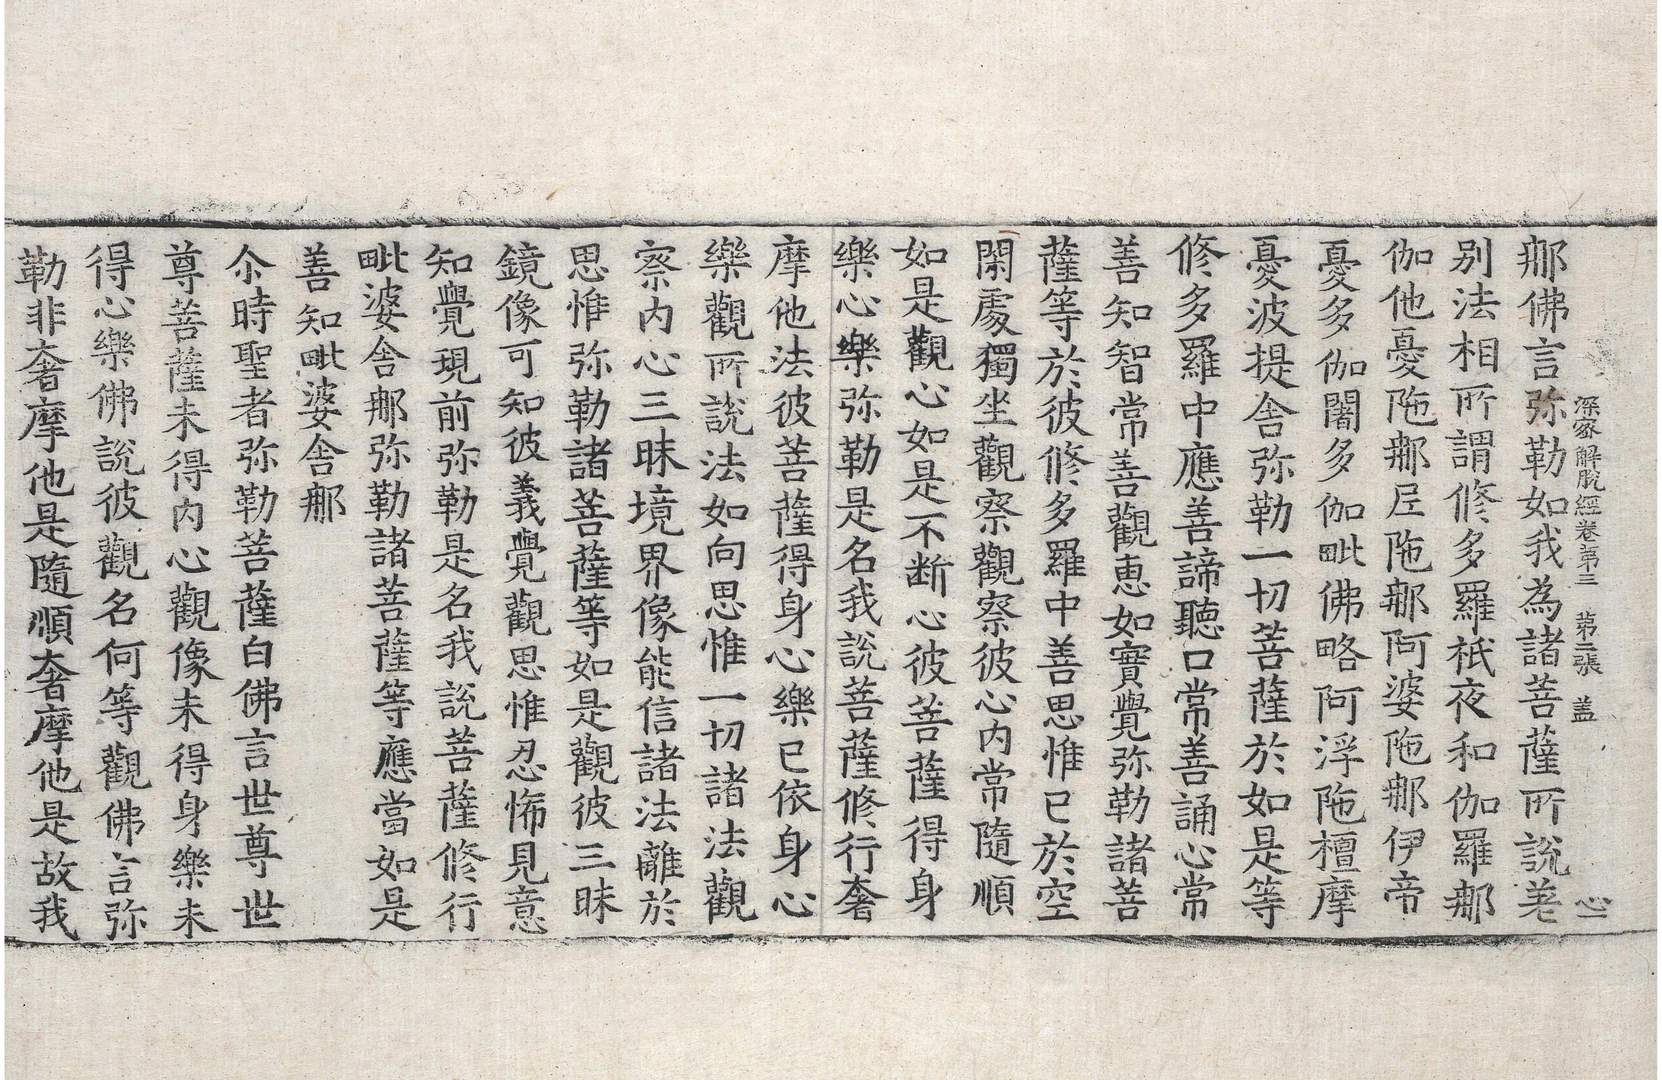 深密解脫經卷第三 第二張 盖 心二
那佛言弥勒如我為諸菩薩所說差
别法相所謂修多羅祇夜和伽羅那
伽他憂陁那尼陁那阿婆陁那伊帝
憂多伽闍多伽毗佛略阿浮陁檀摩
憂波提舍弥勒一切菩薩於如是等
修多羅中應善諦聽口常善誦心常
善知智常善觀恵如實覺弥勒諸菩
薩等於彼修多羅中善思惟已於空
閑處獨坐觀察觀察彼心內常隨順
如是觀心如是不断心彼菩薩得身
樂心樂弥勒是名我說菩薩修行奢
摩他法彼菩薩得身心樂已依身心
樂觀所說法如向思惟一切諸法觀
察內心三昧境界像能信諸法離於
思惟弥勒諸菩薩等如是觀彼三昧
鏡像可知彼義覺觀思惟忍怖見意
知覺現前弥勒是名我說菩薩修行
毗婆舍那弥勒諸菩薩等應當如是
善知毗婆舍那
尒時聖者弥勒菩薩白佛言世尊世
尊菩薩未得內心觀像未得身樂未
得心樂佛說彼觀名何等觀佛言弥
勒非奢摩他是隨順奢摩他是故我